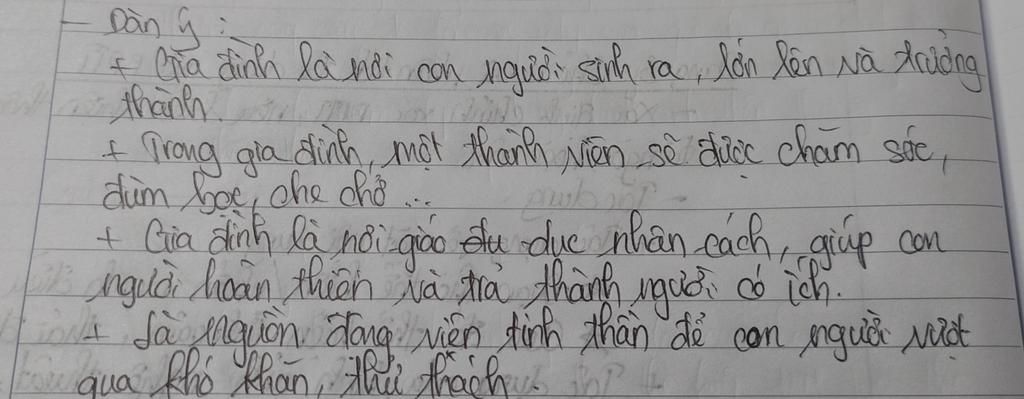 - Dàn ý :
+ Gia đình là nơi con người sinh ra, lớn lên và trưởng
thành.
+ Trong gia đình, một thành viên sẽ được chăm sóc,
đùm bọc, che chở ...
+ Gia đình là nơi giáo dục nhân cách, giúp con
người hoàn thiện và trở thành người có ích.
+ Là nguồn động viên tinh thần để con người vượt
qua khó khăn, thử thách.